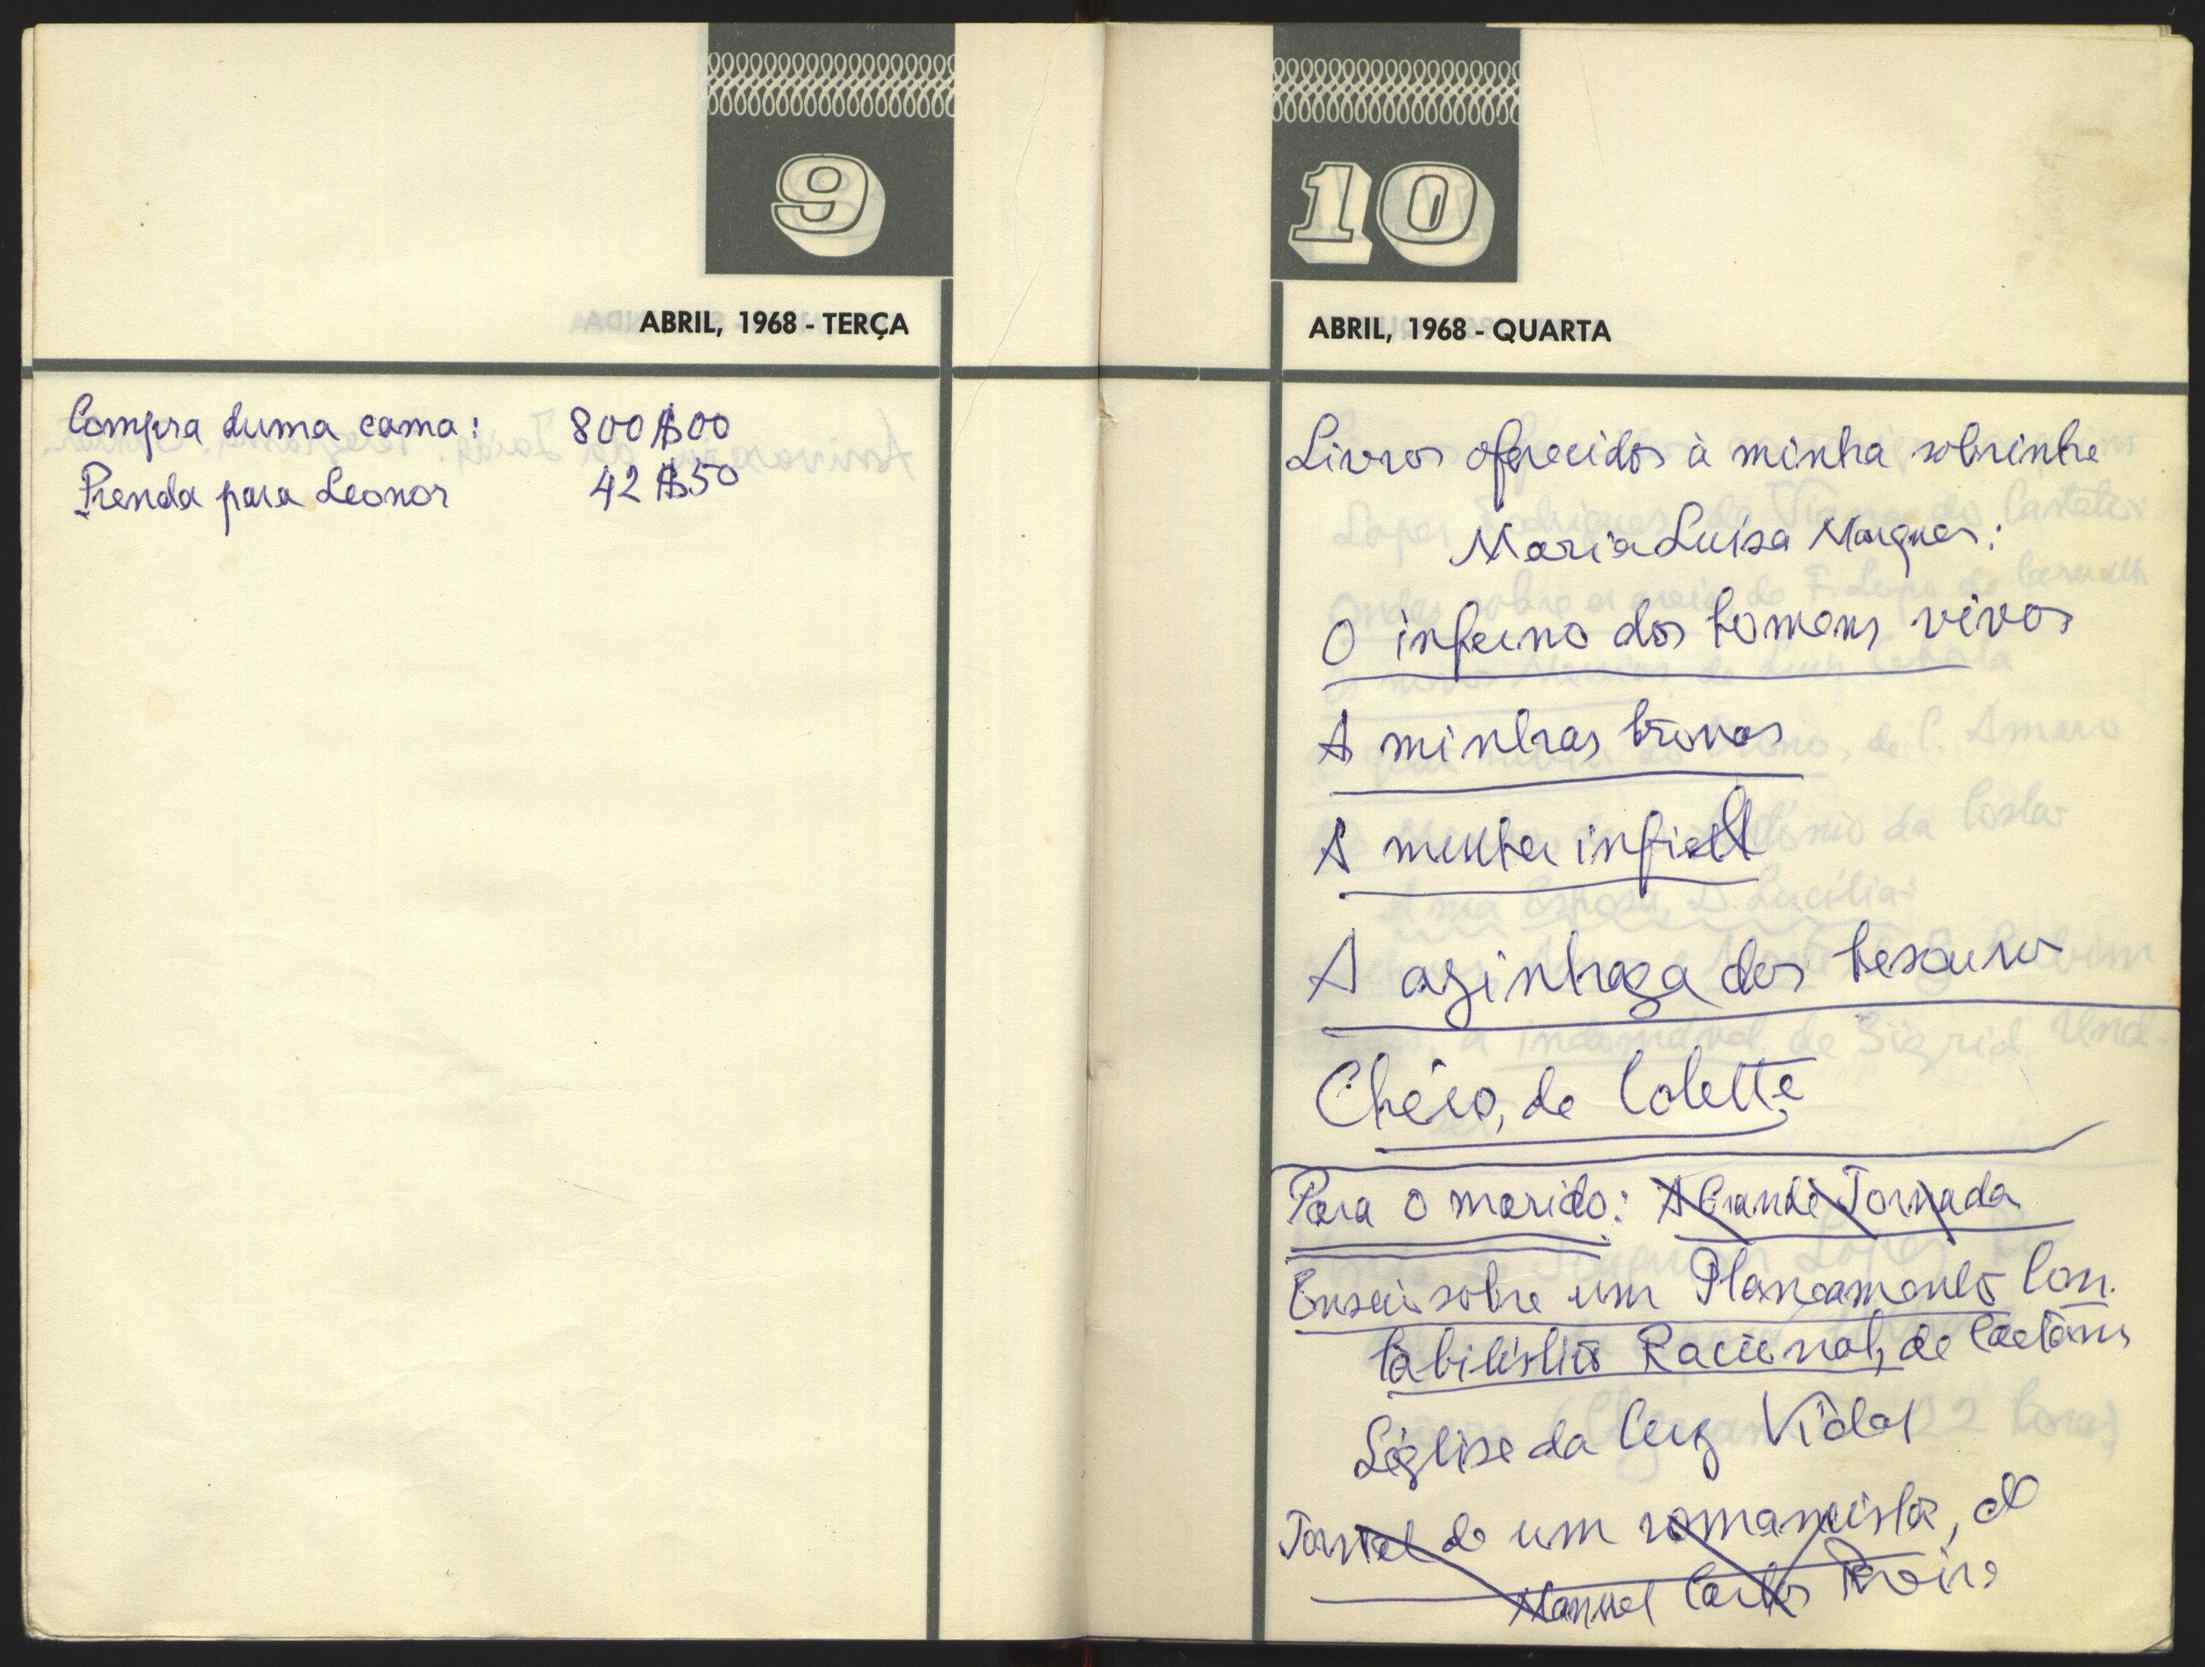 9
ABRIL, 1968 - TERÇA
Compra duma cama: 800$00
Prenda para Leonor 42$50
10
ABRIL, 1968 - QUARTA
Livros oferecidos à minha sobrinha
Maria Luísa Marques:
O inferno dos homens vivos
A minhas trovas
A mulher infiel
A azinhaga dos besouros
Chério, de Colette
Para o marido: A Grande Jornada
Ensaio sobre um Planeamento Con.
tabilístico Racional, de Caetano
Léglise da Cruz Vidal
Jornal de um romancista, de
Manuel Carlos